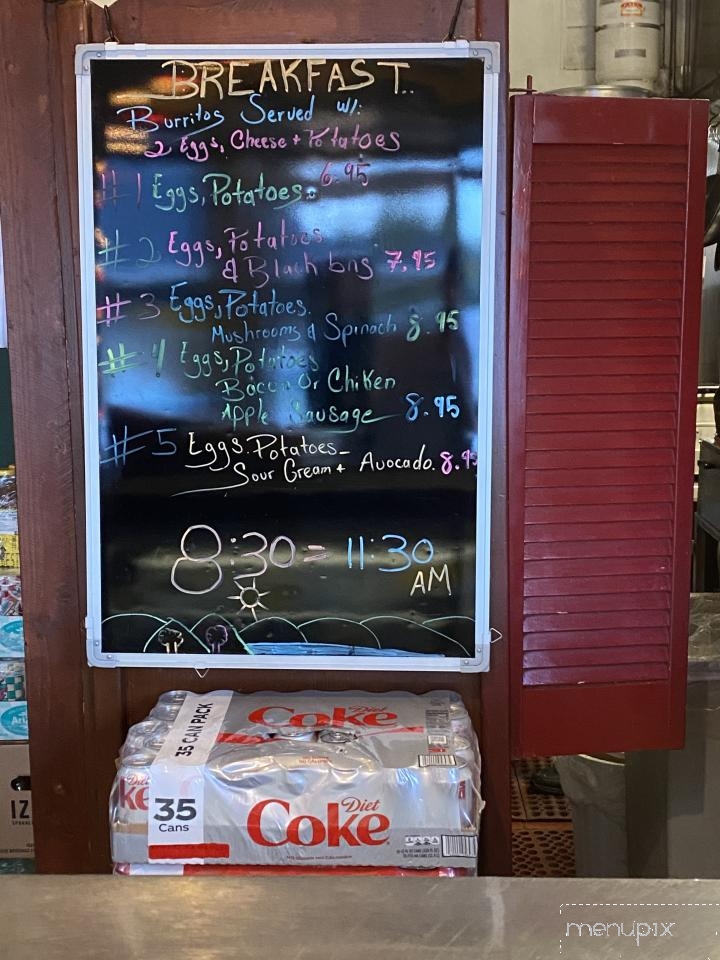 BREAKFAST..
Burritos Served w/:
2 Eggs, Cheese + Potatoes
6.95
#1 Eggs, Potatoes.
#2 Eggs, Potatoes
& Black bns 7.95
#3 Eggs, Potatoes.
Mushrooms & Spinach 8.95
#4 Eggs, Potatoes
Bacon Or Chiken
Apple Sausage 8.95
#5 Eggs. Potatoes
Sour Cream + Avocado. 8.95
8:30 = 11:30
AM
35 CAN PACK
Diet
Coke
Diet
ke
35
Cans
Diet
Coke
IZ
menupix